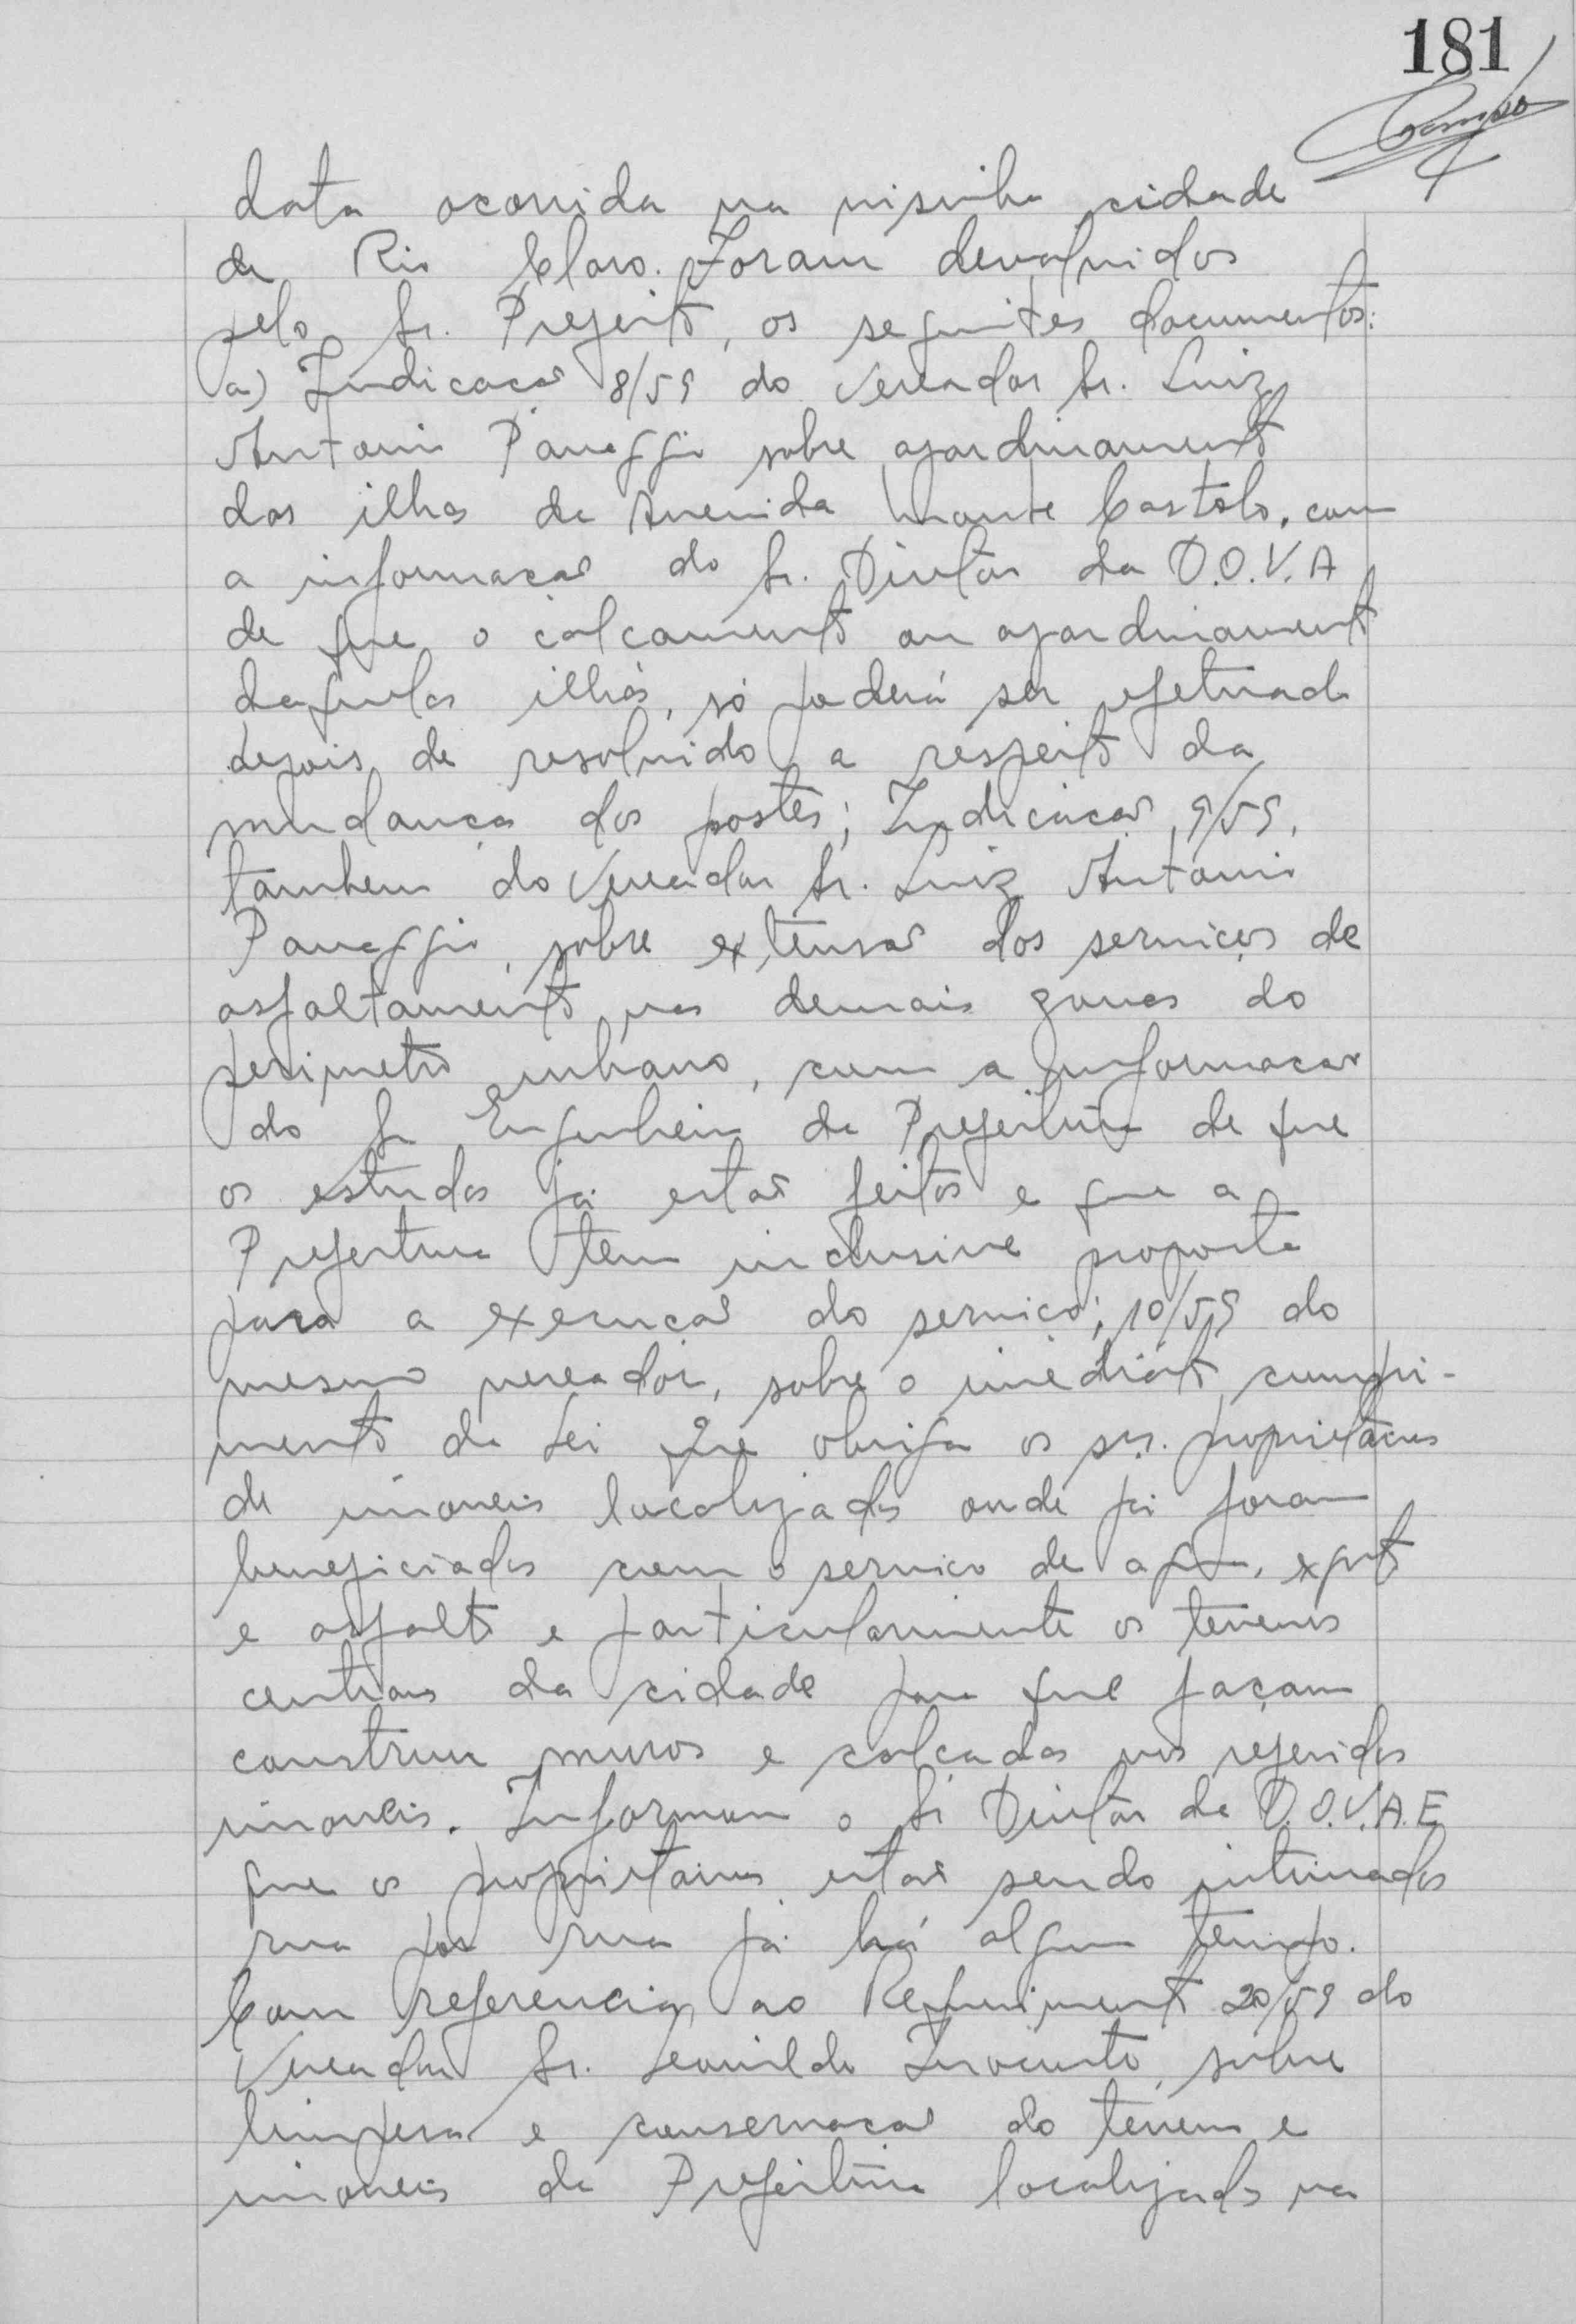 181
data ocorrida na visinha cidade
de Rio Claro. Foram devolvidos
pelo Sr. Prefeito, os seguintes documentos:
a) Indicação 8/59 do Vereador Sr. Luiz
Antonio Paneggio sobre ajardinamento
das ilhas da Avenida Monte Castelo, com
a informação do Sr. Diretor da D.O.V.A
de que o calçamento ou ajardinamento
daquelas ilhas, só poderá ser efetuado
depois de resolvido a respeito da
mudança dos postes; Indicação 9/59,
tambem do Vereador Sr. Luiz Antonio
Paneggio, sobre extensão dos serviços de
asfaltamento nas demais zonas do
perimetro urbano, com a informação
do Sr Engenheiro da Prefeitura de que
os estudos já estão feitos e que a
Prefeitura tem inclusive proposta
para a execução do serviço; 10/59 do
mesmo vereador, sobre o imediato cumpri-
mento da Lei que obriga os srs. proprietarios
de imoveis localizados onde já foram
beneficiados com o serviço de agua, exgoto
e asfalto e particularmente os terrenos
centrais da cidade para que façam
construir muros e calçadas nos referidos
imoveis. Informou o Sr Diretor da D.O.V.A.E
que os proprietarios estão sendo intimados
rua por rua já há algum tempo.
Com referencia ao Requerimento 20/59 do
Vereador Sr. Leonildo Inocente, sobre
limpesa e conservação do terreno e
imoveis da Prefeitura localizados na